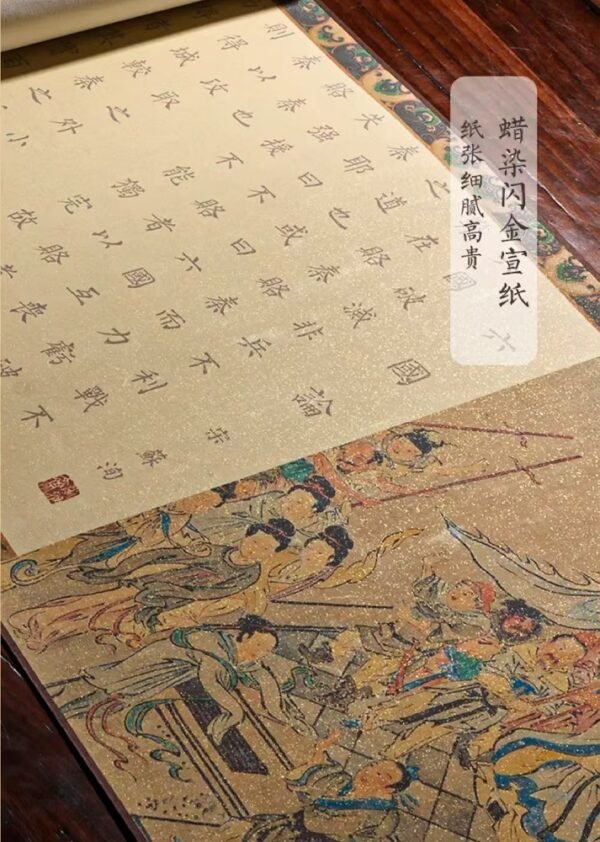 蜡染闪金宣纸
纸张细腻高贵
六國論
宋 蘇洵
國破滅非兵不利戰不
在賂秦賂秦而力虧破
之道也或曰六國互喪
秦耶曰不賂者以賂者
失強援不能獨完故
賂秦也
秦以攻取之外小
則
得城較秦之